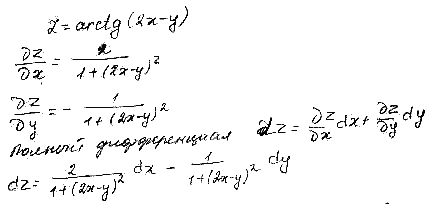 z = arctg (2x-y)
∂z/∂x = 2/(1+(2x-y)²)
∂z/∂y = - 1/(1+(2x-y)²)
Полный дифференциал dz = ∂z/∂x dx + ∂z/∂y dy
dz = 2/(1+(2x-y)²) dx - 1/(1+(2x-y)²) dy